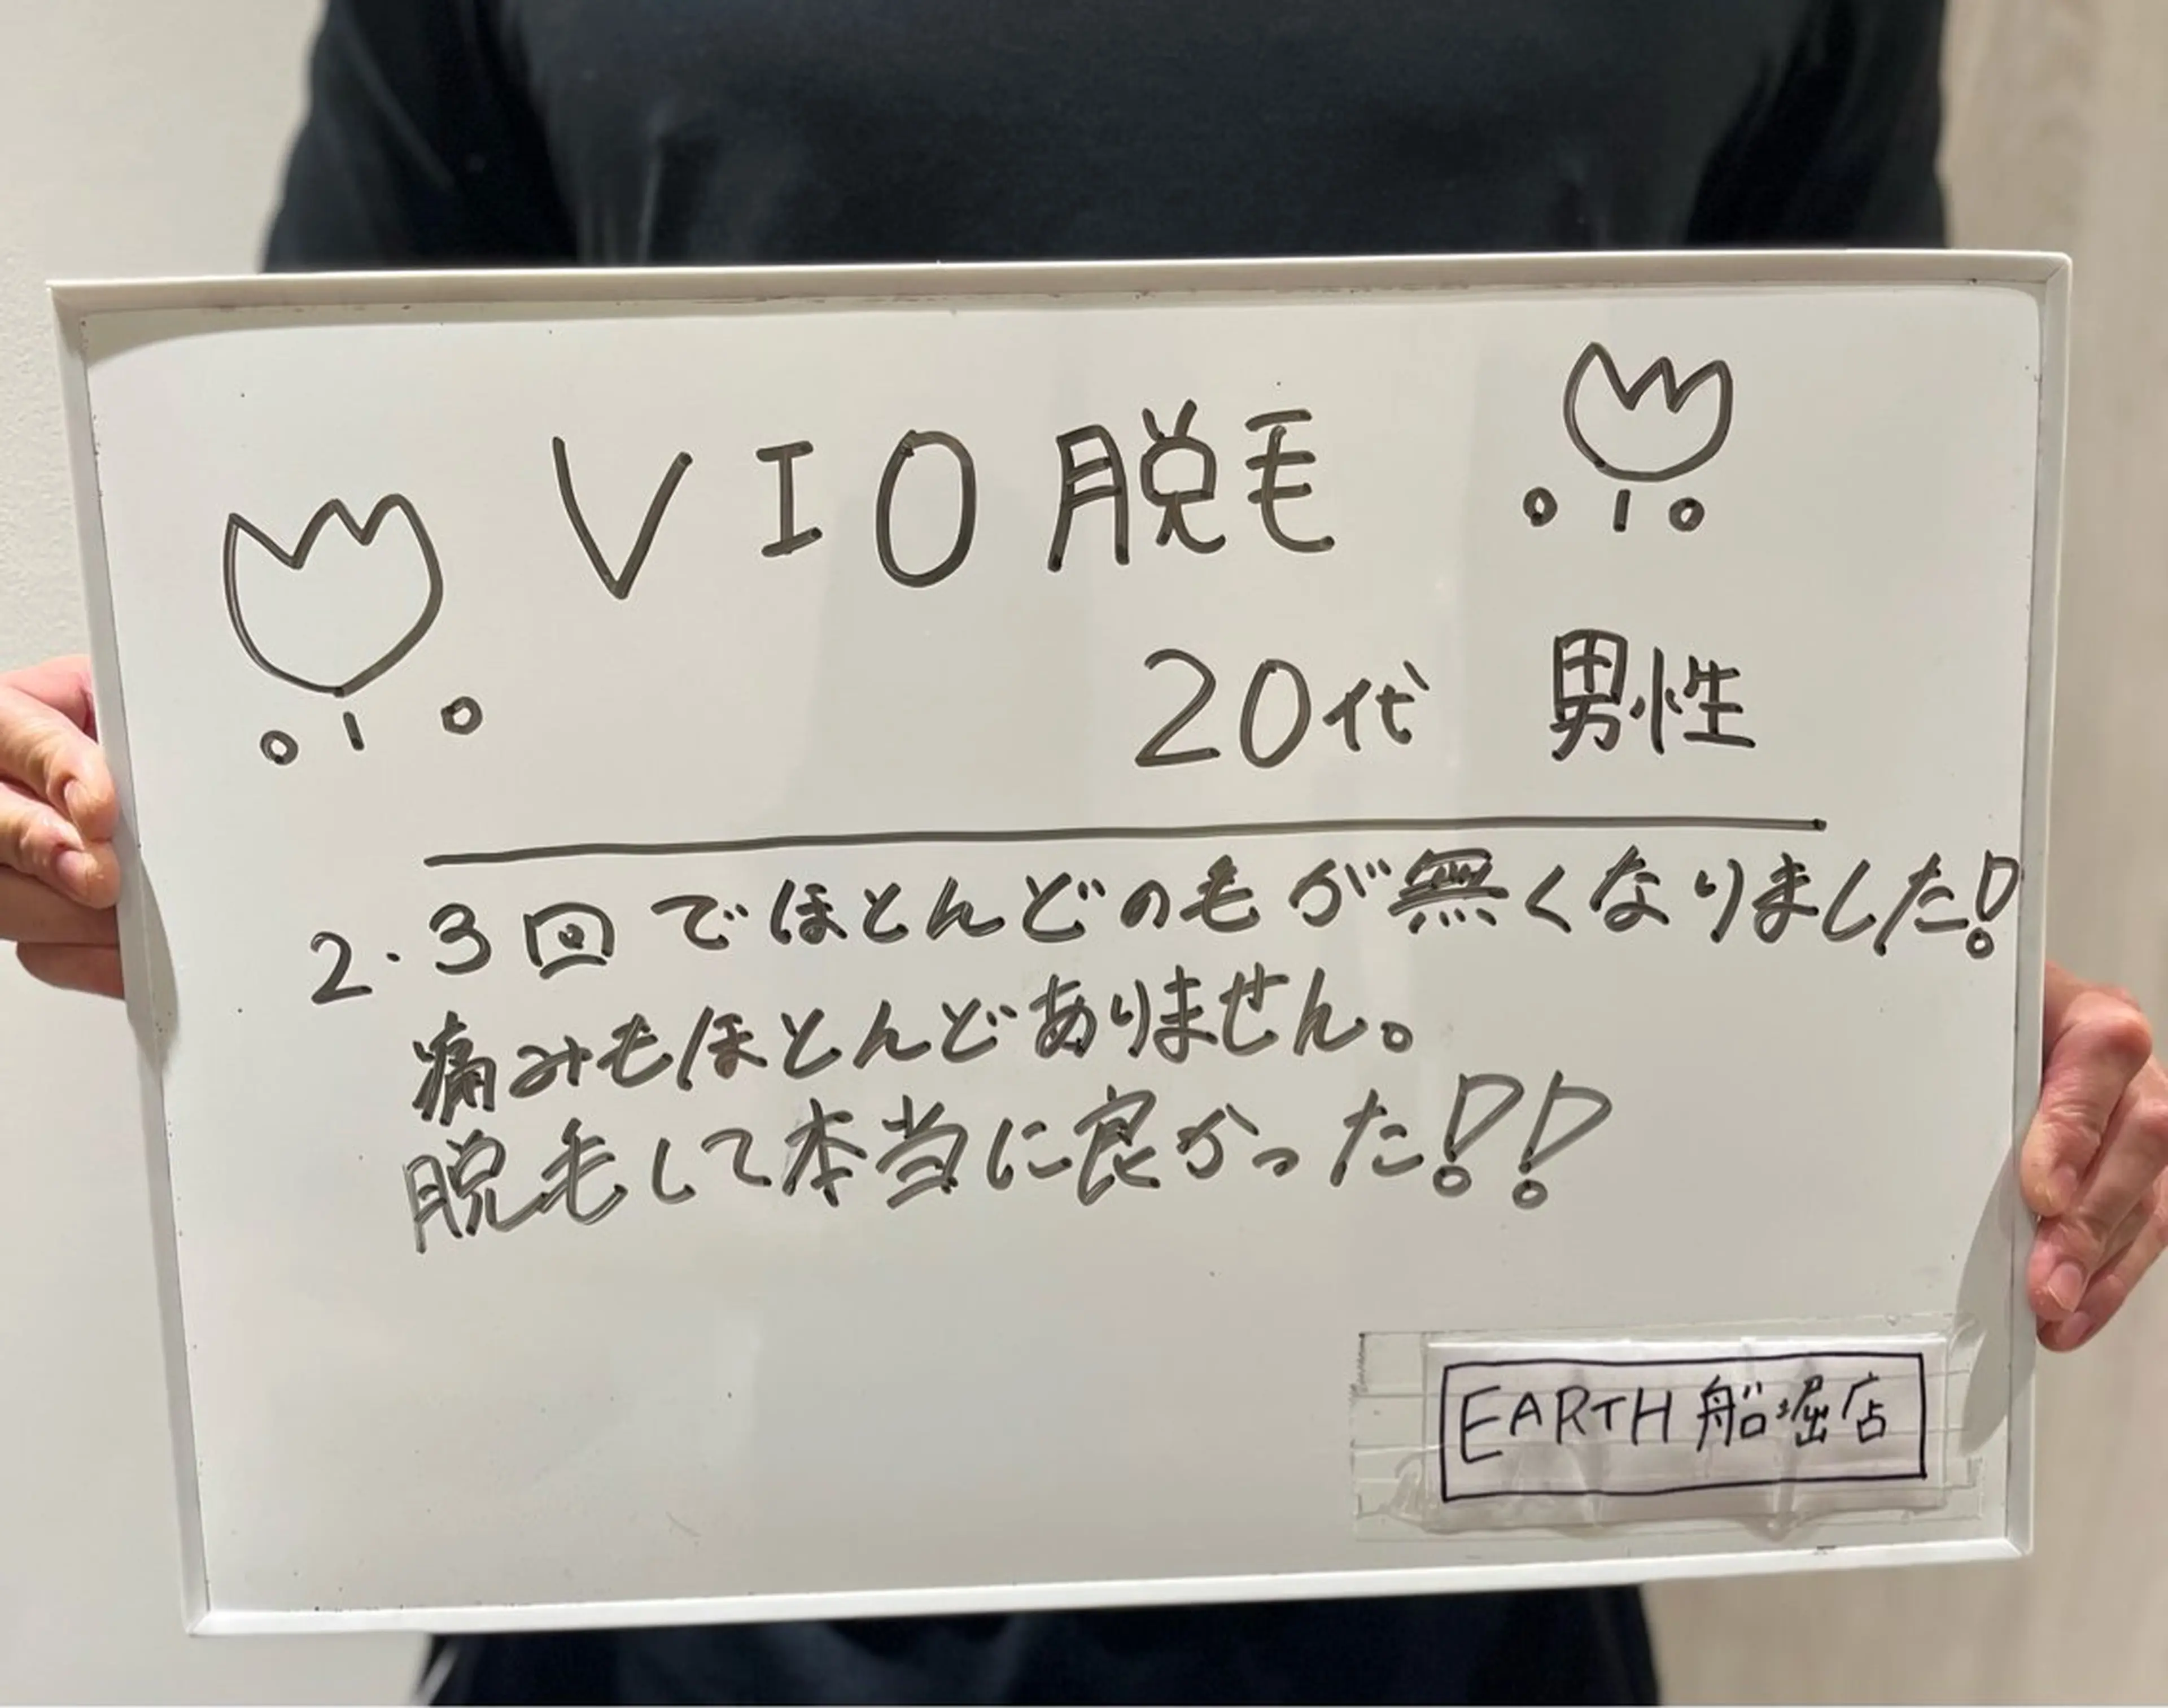 VIO脱毛
20代 男性
2.3回でほとんどの毛が無くなりました!
痛みもほとんどありません。
脱毛して本当に良かった!!
EARTH 船堀店